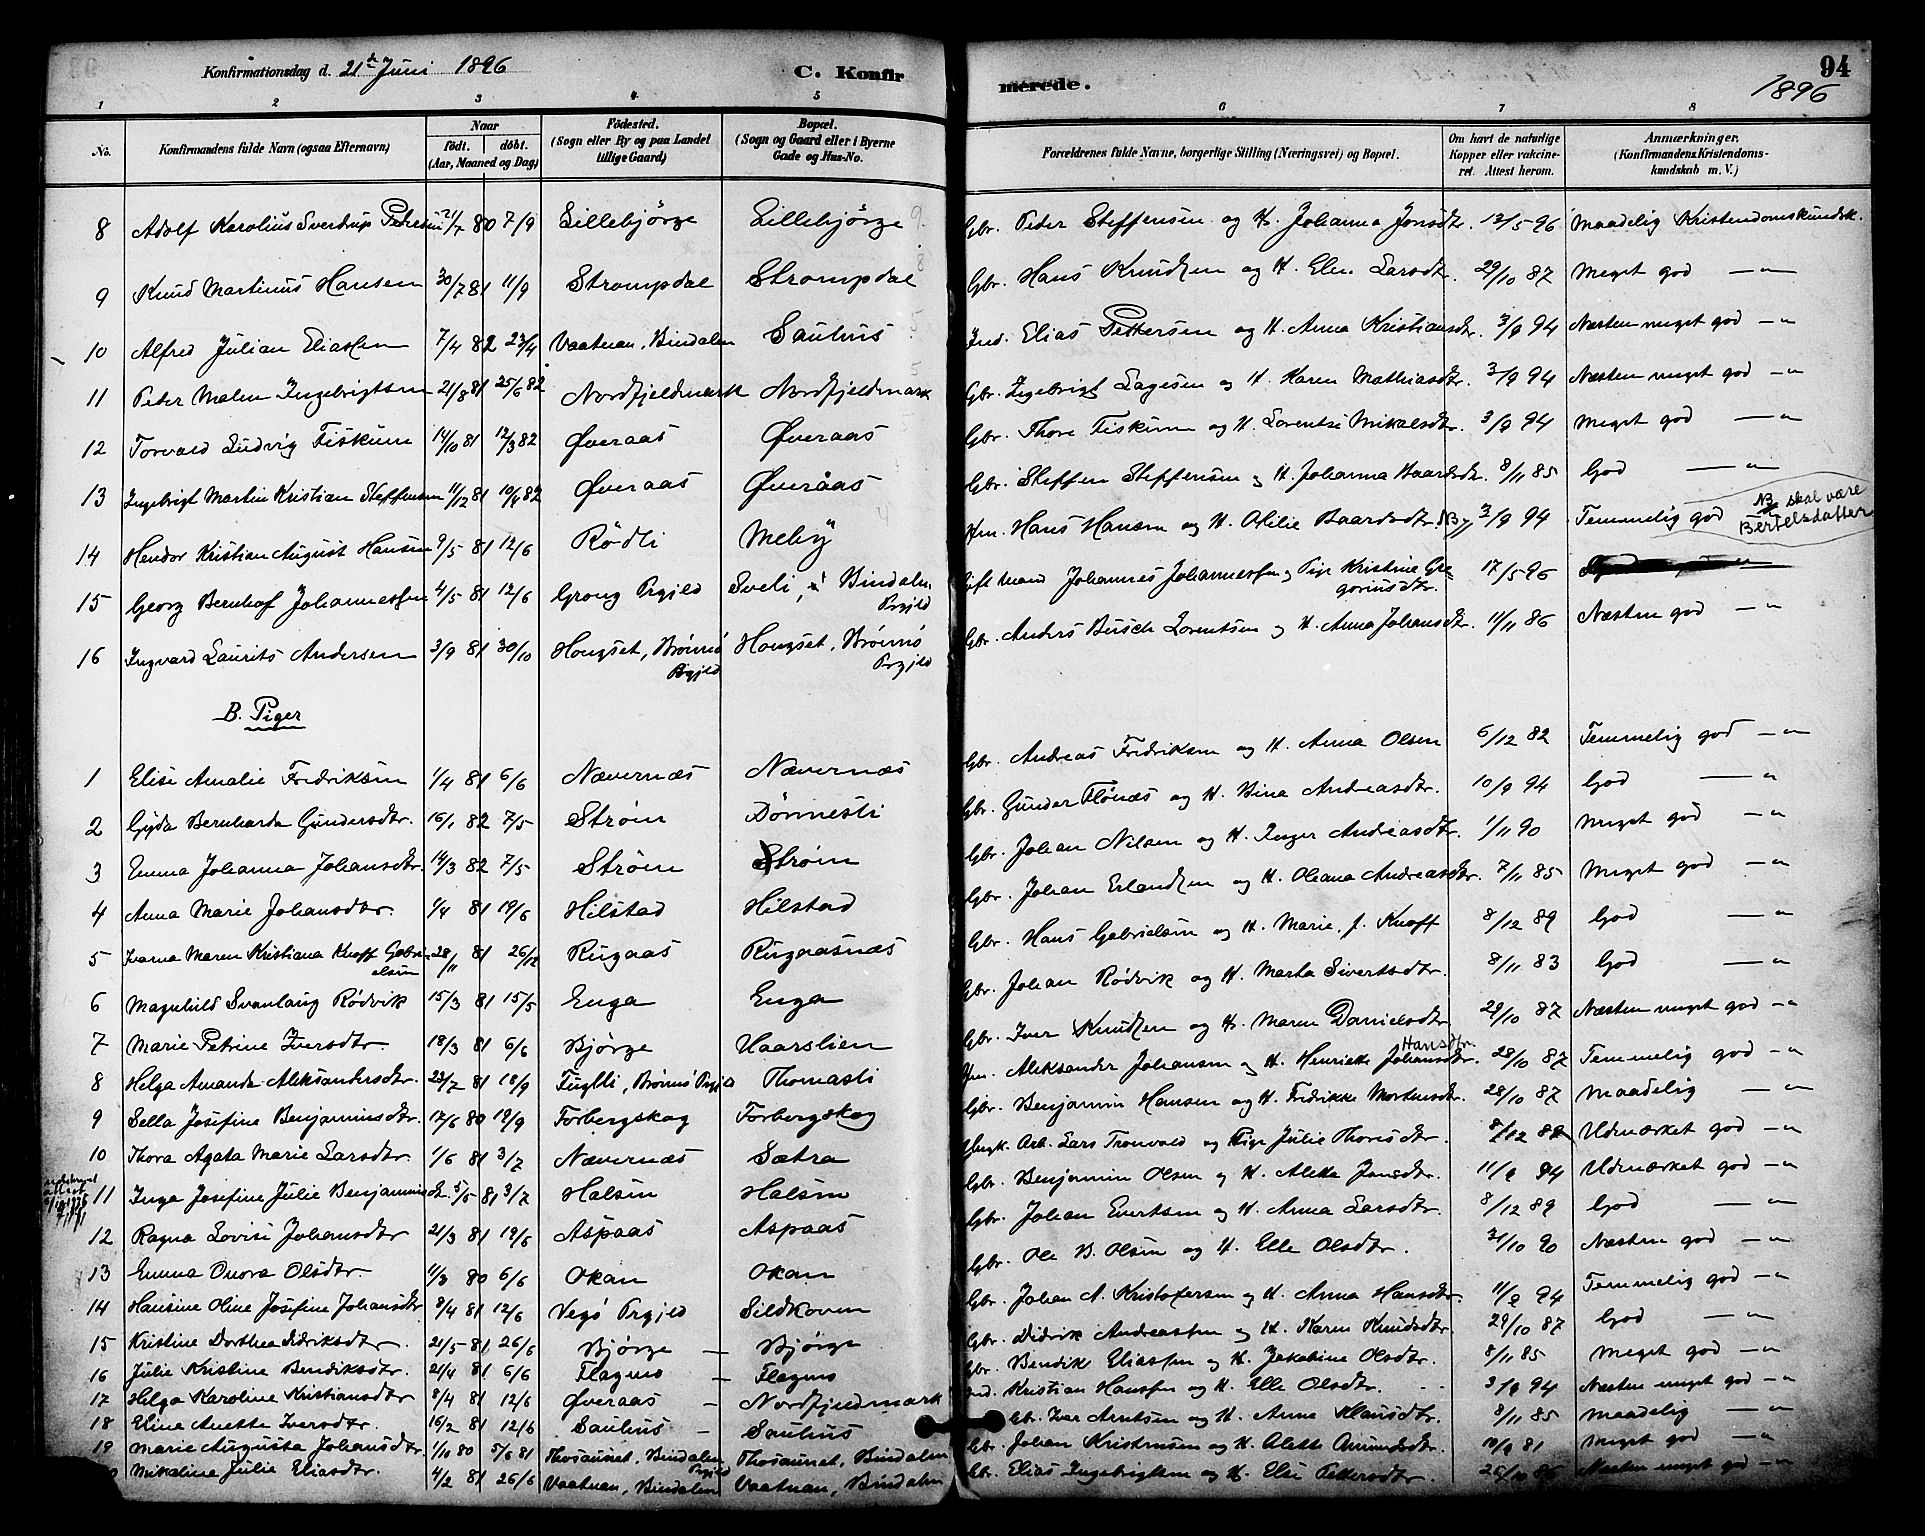 Konfirmationsdag d. 21de Juni 1896
C. Konfirmerede.
94
1896
1 2 3 4 5 6 7 8
No. Konfirmandens fulde Navn (ogsaa Efternavn) Naar födt. döbt. (Aar, Maaned og Dag) Födested. (Sogn eller By og paa Landet tillige Gaard) Bopæl. (Sogn og Gaard eller i Byerne Gade og Hus-No. Forældrenes fulde Navne, borgerlige Stilling (Næringsvei) og Bopæl. Om havt de naturlige Kopper eller vakcineret. Attest herom. Anmærkninger. (Konfirmandens Kristendomskundskab m. V.)
8 Adolf Karolius Sverdrup Petersen 21/7 80 7/9 Lillebjörge Lillebjörge Gbr. Peder Steffensen og H. Johanna Jonsdtr. 13/5 96 Maadelig Kristendomskundsk.
9 Knud Martinus Hansen 30/7 81 11/9 Strompdal Strompdal Gbr. Hans Knudsen og H. Elen Larsdtr. 29/10 87 Meget god — " —
10 Alfred Julian Eliassen 7/4 82 23/4 Vaatnan, Bindalen Saulhus Ind. Elias Pettersen og H. Anna Kristiansdtr. 3/9 94 Næsten meget god — "
11 Peter Malen Ingebrigtsen 21/8 81 25/6 82 Nordfjeldmark Nordfjeldmark Gbr. Ingebrigt Lagesen og H. Karen Mathiasdtr. 3/9 94 Næsten meget god — "
12 Torvald Ludvig Fiskum 14/10 81 12/3 82 Øveraas Øveraas Gbr. Thore Fiskum og H. Lorentse Mikalsdtr. 3/9 94 Meget god — "
13 Ingebrigt Martin Kristian Steffensen 11/12 81 10/4 82 Øveraas Øveraas Gbr. Steffen Steffensen og H. Johanna Haardsdtr. 8/11 85 God — "
14 Hendor Kristian August Hansen 9/5 81 12/6 Rödli Meby Hm. Hans Hansen og H. Otilie Baardsdtr. 3/9 94 Temmelig god NB skal være Bertelsdatter
15 Georg Bernhof Johannessen 4/5 81 12/6 Grong Prgjeld Sveli, Bindalen Prgjeld Gift Mand Johannes Johannessen og Pige Kristine Gregoriusdtr. 17/5 96
16 Ingvard Laurits Andersen 3/9 81 30/10 Hongset, Brönnö Prgjeld Hongset, Brönnö Prgjeld Gbr. Anders Busch Lorentsen og H. Anna Johansdtr. 11/11 86 Næsten god — "
B. Piger
1 Elise Amalie Fredriksen 1/4 81 6/6 Nævernæs Nævernæs Gbr. Andreas Fredriksen og H. Anna Olsen 6/12 82 Temmelig god — "
2 Gyda Bernharda Gundersdtr. 16/1 82 7/5 Ström Dönnesli Gbr. Gunder Flönæs og H. Bina Andreasdtr. 10/9 94 God — "
3 Emma Johanna Johansdtr. 14/3 82 7/5 Ström Ström Gbr. Johan Nilsen og H. Inger Andreasdtr. 1/11 90 Meget god — "
4 Anna Marie Johansdtr. 1/4 81 19/6 Hilstad Hilstad Gbr. Johan Erlandsen og H. Oleana Andreasdtr. 7/11 85 Meget god — "
5 Ivarna Maren Kristiana Knoff Gabrielsen 28/11 81 26/12 Rugaas Rugaasnæs Gbr. Hans Gabrielsen og H. Marie, f. Knoff 8/12 89 God — "
6 Magnhild Svanlaug Rödvik 15/3 81 15/5 Enga Enga Gbr. Johan Rödvik og H. Marta Sivertsdtr. 8/11 83 God — "
7 Marie Petrine Iversdtr. 18/3 81 6/6 Björge Haarslien Gbr. Iver Knudsen og H. Maren Danielsdtr. 29/10 87 Næsten meget god — "
8 Helga Amanda Aleksandersdtr. 23/7 81 18/9 Fuglli, Brönnö Prgjeld Thomasli Hm. Aleksander Johansen og H. Henriette Johansdtr. Hansdtr. 28/10 87 Temmelig god — "
9 Sella Josefine Benjaminsdtr. 17/6 80 19/9 Forbergskog Forbergskog Gbr. Benjamin Hansen og H. Fredrikke Mortensdtr. 28/10 87 Maadelig — "
10 Thora Agata Marie Larsdtr. 1/6 81 3/7 Nævernæs Sætra Ungk. Arb. Lars Tronvold og Pige Julie Thoresdtr. 8/12 82 Udmærket god — "
11 Inga Josefine Julie Benjaminsdtr. 5/5 81 3/7 Halsen Halsen Gbr. Benjamin Olsen og H. Aletta Jensdtr. 11/9 94 Udmærket god — "
12 Ragna Lovise Johansdtr 21/3 81 19/6 Aspaas Aspaas Gbr. Johan Evertsen og H. Anna Larsdtr. 8/12 89 God — "
13 Emma Onora Olsdtr. 11/3 80 6/6 Okan Okan Gbr. Ole B. Olsen og H. Elle Olsdtr. 31/10 90 Næsten god — "
14 Hansine Oline Josefine Johansdtr 8/4 81 12/6 Vegö Prgjeld Sildkoven Gbr. Johan A. Kristofersen og H. Anna Hansdtr. 11/9 94 Temmelig god — "
15 Kristine Dorthea Didriksdtr. 21/5 81 26/6 Bjørge — Bjørge Gbr. Didrik Andreassen og H. Karen Knudsdtr. 29/10 87 God — "
16 Julie Kristine Bendiksdtr. 21/4 81 6/6 Flagmo — Flagmo Gbr. Bendik Eliassen og H. Jakobine Olsdtr. 8/11 85 Meget god — "
17 Helga Karoline Kristiansdtr 8/4 81 12/6 Øveraas — Nordfjeldmark Ind. Kristian Hanssen og H. Elle Olsdtr. 3/9 94 Næsten meget god — "
18 Eline Anette Iversdtr. 16/2 81 12/6 Saulhus — Saulhus Gbr. Iver Arntsen og H. Anne Klausdtr. 8/11 85 Maadelig — "
19 Marie Augusta Johansdtr. 1/11 80 5/6 81 Thosaunet, Bindalen Prgjeld Thosaunet, Bindalen Gbr. Johan Kristensen og H. Alette Amundsdtr. 10/9 81 Meget god — "
Mikaline Julie Eliasdtr. 4/2 81 26/6 Vaatnan, Bindalen Vaatnan, Bindalen Gbr. Elias Ingebrigtsen og H. Else Pettersdtr. 25/10 86 Næsten meget god — "